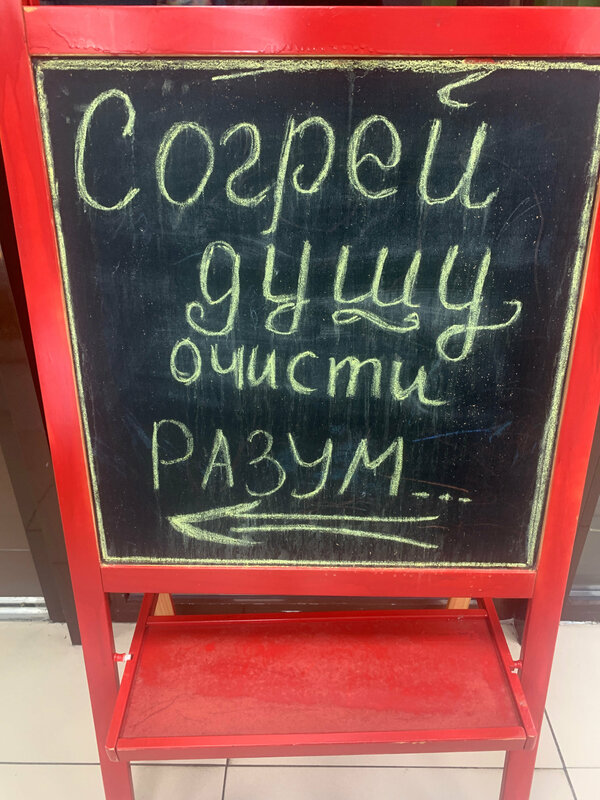 Согрей
душу
очисти
РАЗУМ...